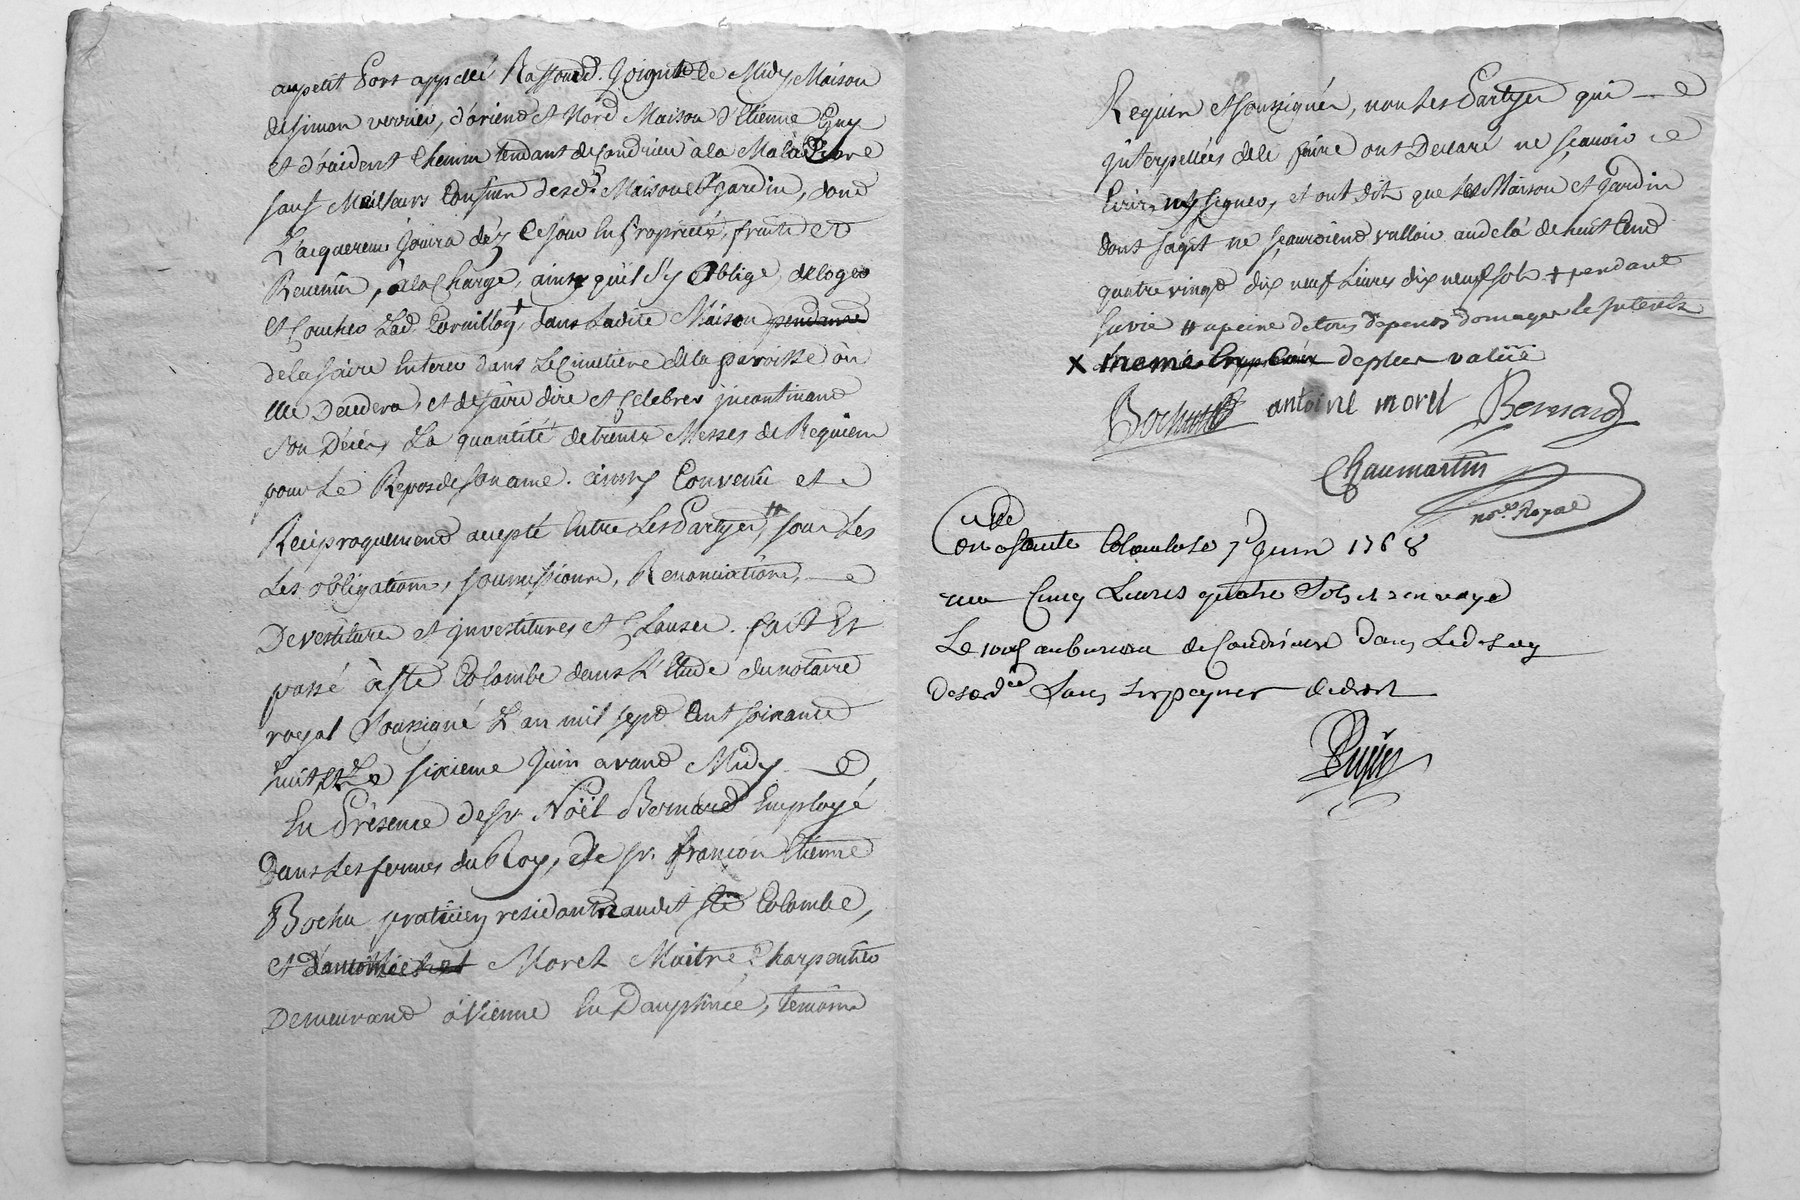 au petit Port appellé Joignant le Midy Maison
de Simon vernier, d'orient et Nord Maison d'Etienne Guy
et d'occident Chemin tendant de Condrieu à la Maladiere
sauf Meilleurs Confins desd. Maison et Jardin, dont
L'acquereur Jouira déz Ce jour En proprieté, fruits et
Revenûs, à la Charge, ainsy qu'il s'y oblige, de loger
et Coucher Lad. + dans Ladite Maison pendant
de la faire Enterer dans Le Cimetiere de la paroisse òu
Elle Decedera, et de faire dire et Celebrer jncontinant
son Décés La quantité de trente Messes de Requiem
pour Le Repos de Son ame. ainsy Convenû et
Reciproquement accepté Entre Les Partyes # sous Les
Les obligations, soumissions, Renonciations,
Devestitures et jnvestitures et Clauses. fait Et
passé à Ste Colombe dans L'Etude du notaire
royal Soussigné L'an mil sept Cent soixante
huit et Le sixieme Juin avant Midy
En Présence de sr. Noël Bernard Employé
Dans Les fermes du Roy, de sr. françois Etienne
Bochu praticien residants audit Ste Colombe,
et d'antoine Morel Maitre Charpentier
Demeurant à Vienne En Dauphinée, temoins
Requis et soussignés, non Les Partyes qui
jnterpellées de le faire ont Declaré ne sçavoir
Ecrire ny signer, et ont dit que Les Maison et Jardin
dont s'agit ne sçauroient valloir audelà de huit Cent
quatre vingt dix neuf Livres dix neuf sols + pendant
sa vie # a peine de tous depens domages et Interets
x de plus value
Bochu antoine morel Bernard
Chaumartin
nore. Royal
Controllé a Sainte Colombe le 7e Juin 1768
reçu Cinq Livres quatre Sols et renvoye
Le au bureau de Condrieux dans Le delay
de Lord.ce pour le payer de droit